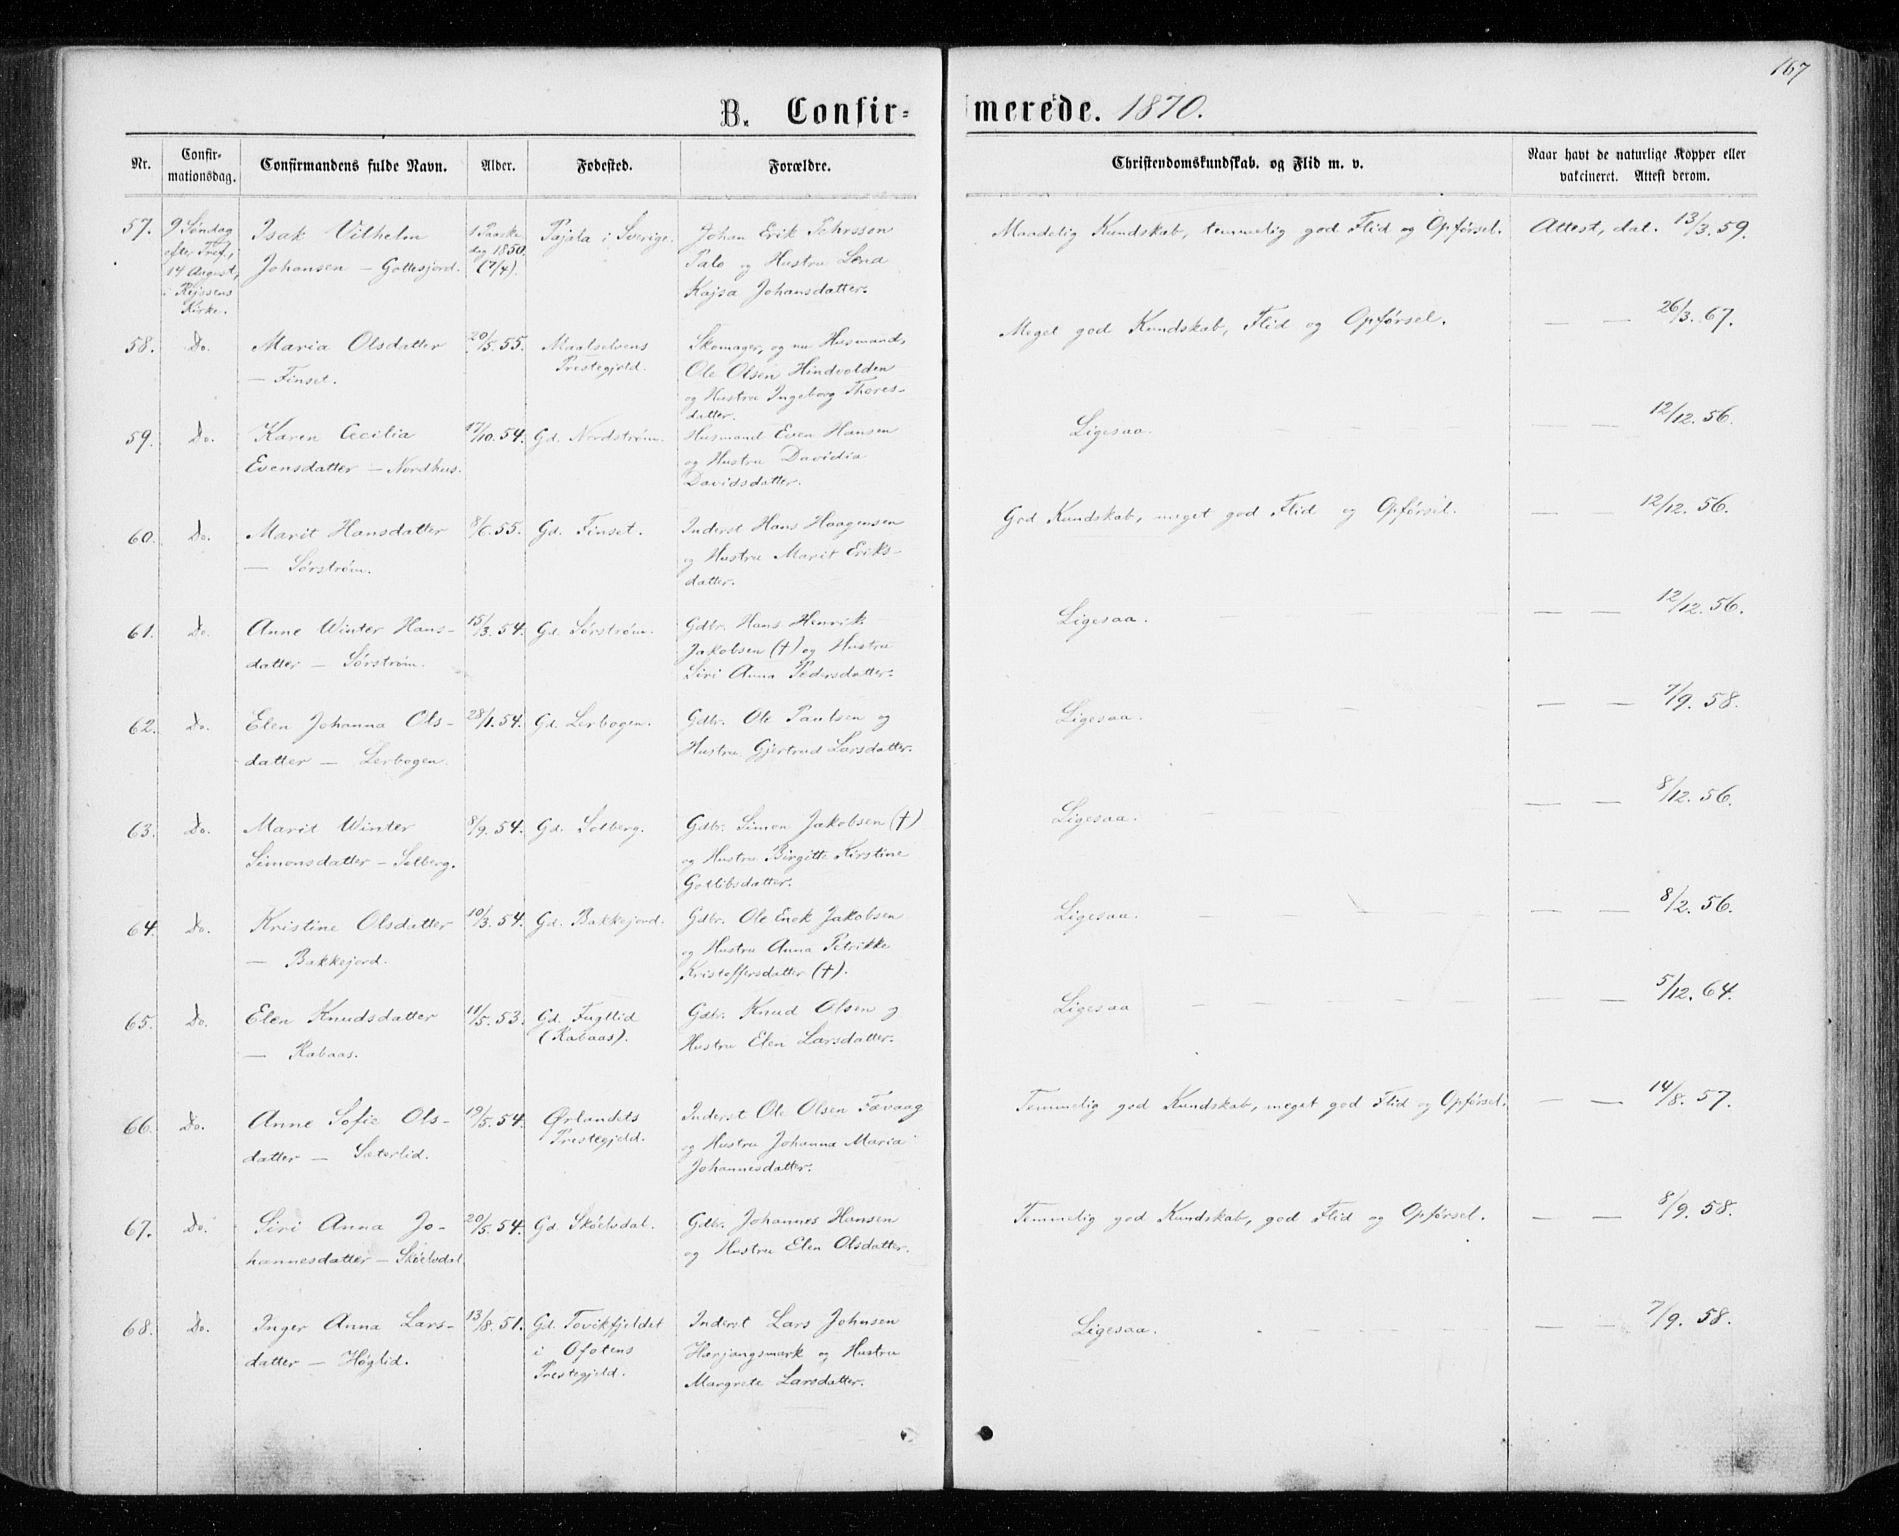 167
B. Confir-
merede. 1870.
Nr.
Confir-
mationsdag.
Confirmandens fulde Navn.
Alder.
Fødested.
Forældre.
Christendomskundskab. og Flid m. v.
Naar havt de naturlige Kopper eller
vakcineret. Attest derom.
57.
9 Søndag
efter Tref.,
14 August,
i
Kirke.
Isak Vilhelm
Johansen — Gottesjord.
1 Paaske
dag 1850
(7/4).
Pajala i Sverige.
Johan Erik Pehrsson
Palo og Hustru Lena
Kajsa Johansdatter.
Maadelig Kundskab, temmelig god Flid og Opførsel.
Attest, dat. 13/3. 59.
58.
Do.
Maria Olsdatter
— Finset.
20/5. 55.
Maalselvens
Prestegjeld.
Skomager, og nu Husmand,
Ole Olsen Hindvolden
og Hustru Ingeborg Thores-
datter.
Meget god Kundskab, Flid og Opførsel.
— — 26/3. 67.
59.
Do.
Karen Cecilia
Evensdatter — Nordhus.
17/10. 54.
Gd. Nordstrøm.
Husmand Even Hansen
og Hustru Davidia
Davidsdatter.
Ligesaa.
12/12. 56.
60.
Do.
Marit Hansdatter
— Sørstrøm.
8/6. 55.
Gd. Finset.
Inderst Hans Haagensen
og Hustru Marit Eriks-
datter.
God Kundskab, meget god Flid og Opførsel.
— — 12/12. 56.
61.
Do.
Anne Winter Hans-
datter — Sørstrøm.
15/3. 54.
Gd. Sørstrøm.
Gdbr. Hans Henrik
Jakobsen (†) og Hustru
Siri Anna Pedersdatter.
Ligesaa.
— — 12/12. 56.
62.
Do.
Elen Johanna Ols-
datter — Lerbogen.
28/1. 54.
Gd. Lerbogen.
Gdbr. Ole Paulsen og
Hustru Gjertrud Larsdatter.
Ligesaa.
— — 7/9. 58.
63.
Do.
Marit Winter
Simonsdatter — Solberg.
8/9. 54.
Gd. Solberg.
Gdbr. Simon Jakobsen (†)
og Hustru Birgitte Kirstine
Gotlibsdatter.
Ligesaa.
— — 8/12. 56.
64.
Do.
Kristine Olsdatter
— Bakkejord.
10/3. 54.
Gd. Bakkejord.
Gdbr. Ole Enok Jakobsen
og Hustru Anna Petrikke
Kristoffersdatter (†).
Ligesaa.
— — 8/2. 56.
65.
Do.
Elen Knudsdatter
— Rabaas.
11/5. 53.
Gd. Fugllid
(Rabaas).
Gdbr. Knud Olsen og
Hustru Elen Larsdatter.
Ligesaa
— — 5/12. 64.
66.
Do.
Anne Sofie Ols-
datter — Sæterlid.
19/5. 54.
Ørlandets
Prestegjeld.
Inderst Ole Olsen Fævaag
og Hustru Johanna Maria
Johannesdatter.
Temmelig god Kundskab, meget god Flid og Opførsel.
— — 14/8. 57.
67.
Do.
Siri Anna Jo-
hannesdatter — Skóelvdal.
20/5. 54.
Gd. Skóelvdal.
Gdbr. Johannes Hansen
og Hustru Elen Olsdatter.
Temmelig god Kundskab, god Flid og Opførsel.
— — 8/9. 58.
68.
Do.
Inger Anna Lars-
datter — Høglid.
13/8. 51.
Gd. Tovikfjeldet
i Ofotens
Prestegjeld.
Inderst Lars Johnsen
Herjangsmark og Hustru
Margrete Larsdatter.
Ligesaa.
— — 7/9. 58.